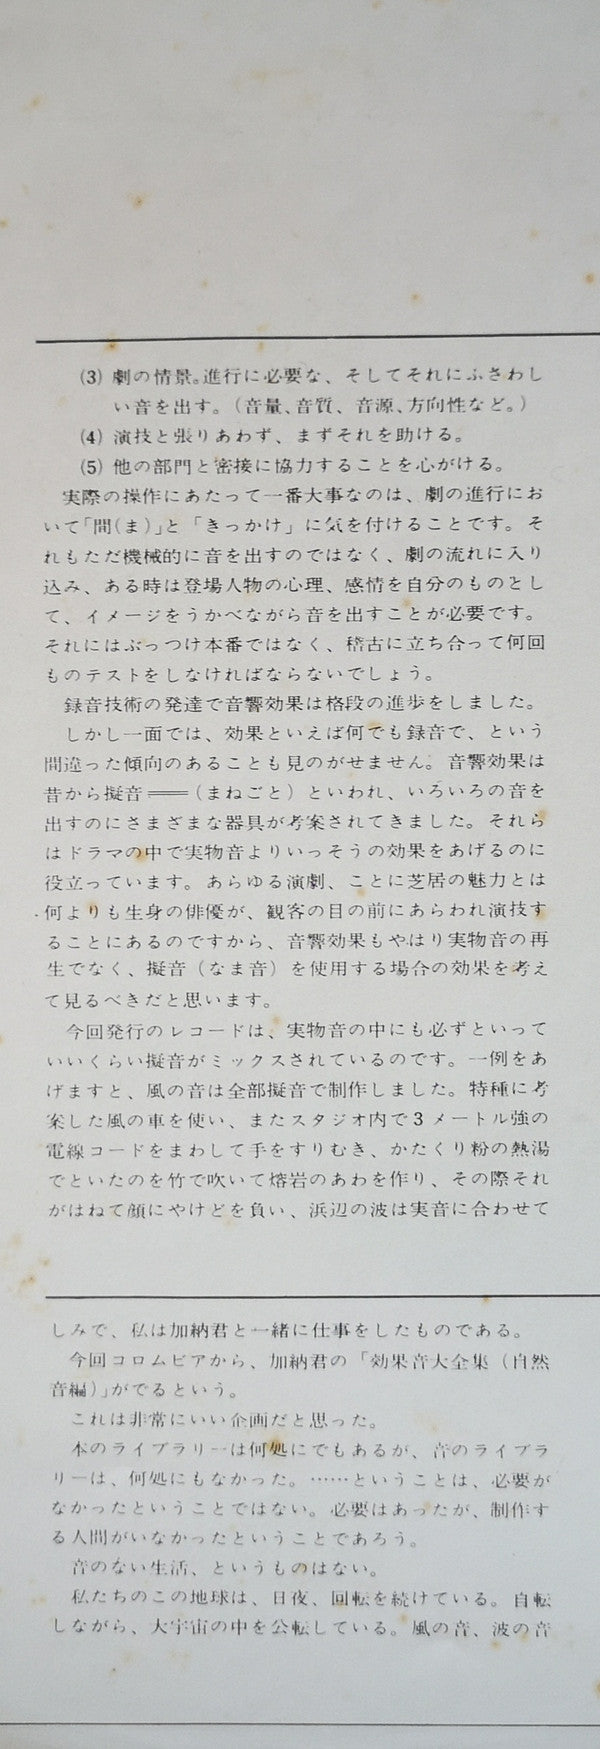 (3) 劇の情景。進行に必要な、そしてそれにふさわし
い音を出す。（音量、音質、音源、方向性など。）
(4) 演技と張りあわず、まずそれを助ける。
(5) 他の部門と密接に協力することを心がける。
実際の操作にあたって一番大事なのは、劇の進行にお
いて「間(ま)」と「きっかけ」に気を付けることです。そ
れもただ機械的に音を出すのではなく、劇の流れに入り
込み、ある時は登場人物の心理、感情を自分のものとし
て、イメージをうかべながら音を出すことが必要です。
それにはぶっつけ本番ではなく、稽古に立ち合って何回
ものテストをしなければならないでしょう。
録音技術の発達で音響効果は格段の進歩をしました。
しかし一面では、効果といえば何でも録音で、という
間違った傾向のあることも見のがせません。音響効果は
昔から擬音＝＝（まねごと）といわれ、いろいろの音を
出すのにさまざまな器具が考案されてきました。それら
はドラマの中で実物音よりいっそうの効果をあげるのに
役立っています。あらゆる演劇、ことに芝居の魅力とは
何よりも生身の俳優が、観客の目の前にあらわれ演技す
ることにあるのですから、音響効果もやはり実物音の再
生でなく、擬音（なま音）を使用する場合の効果を考え
て見るべきだと思います。
今回発行のレコードは、実物音の中にも必ずといって
いいくらい擬音がミックスされているのです。一例をあ
げますと、風の音は全部擬音で制作しました。特種に考
案した風の車を使い、またスタジオ内で3メートル強の
電線コードをまわして手をすりむき、かたくり粉の熱湯
でといたのを竹で吹いて熔岩のあわを作り、その際それ
がはねて顔にやけどを負い、浜辺の波は実音に合わせて
しみで、私は加納君と一緒に仕事をしたものである。
今回コロムビアから、加納君の「効果音大全集（自然
音編）」がでるという。
これは非常にいい企画だと思った。
本のライブラリーは何処にでもあるが、音のライブラ
リーは、何処にもなかった。……ということは、必要が
なかったということではない。必要はあったが、制作す
る人間がいなかったということであろう。
音のない生活、というものはない。
私たちのこの地球は、日夜、回転を続けている。自転
しながら、大宇宙の中を公転している。風の音、波の音